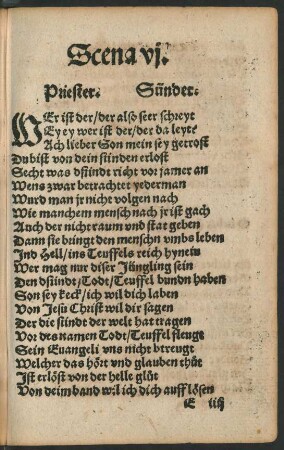 Scena vj.
Priester. Sünder.
WEr ist der/der also seer schreyt
Ey ey wer ist der/der da leyt
Ach lieber Son mein sey getrost
Du bist von dein sünden erlost
Secht was dsündt richt vor jamer an
Wens zwar betrachtet yederman
Wurd man jr nicht volgen nach
Wie manchem mensch nach jr ist gach
Auch der nicht raum vnd stat geben
Dann sie bringt den menschn vmbs leben
Ind Hell/ins Teuffels reich hynein
Wer mag nur diser Jüngling sein
Den dsündt/Todt/Teuffel bundn haben
Son sey keck/ich wil dich laben
Von Jesu Christ wil dir sagen
Der die sündt der welt hat tragen
Vor des namen Todt/Teuffel fleugt
Sein Euangeli vns nicht btreugt
Welcher das hört vnd glauben thut
Ist erlöst von der helle glüt
Von deim band wil ich dich auff lösen
E iiij